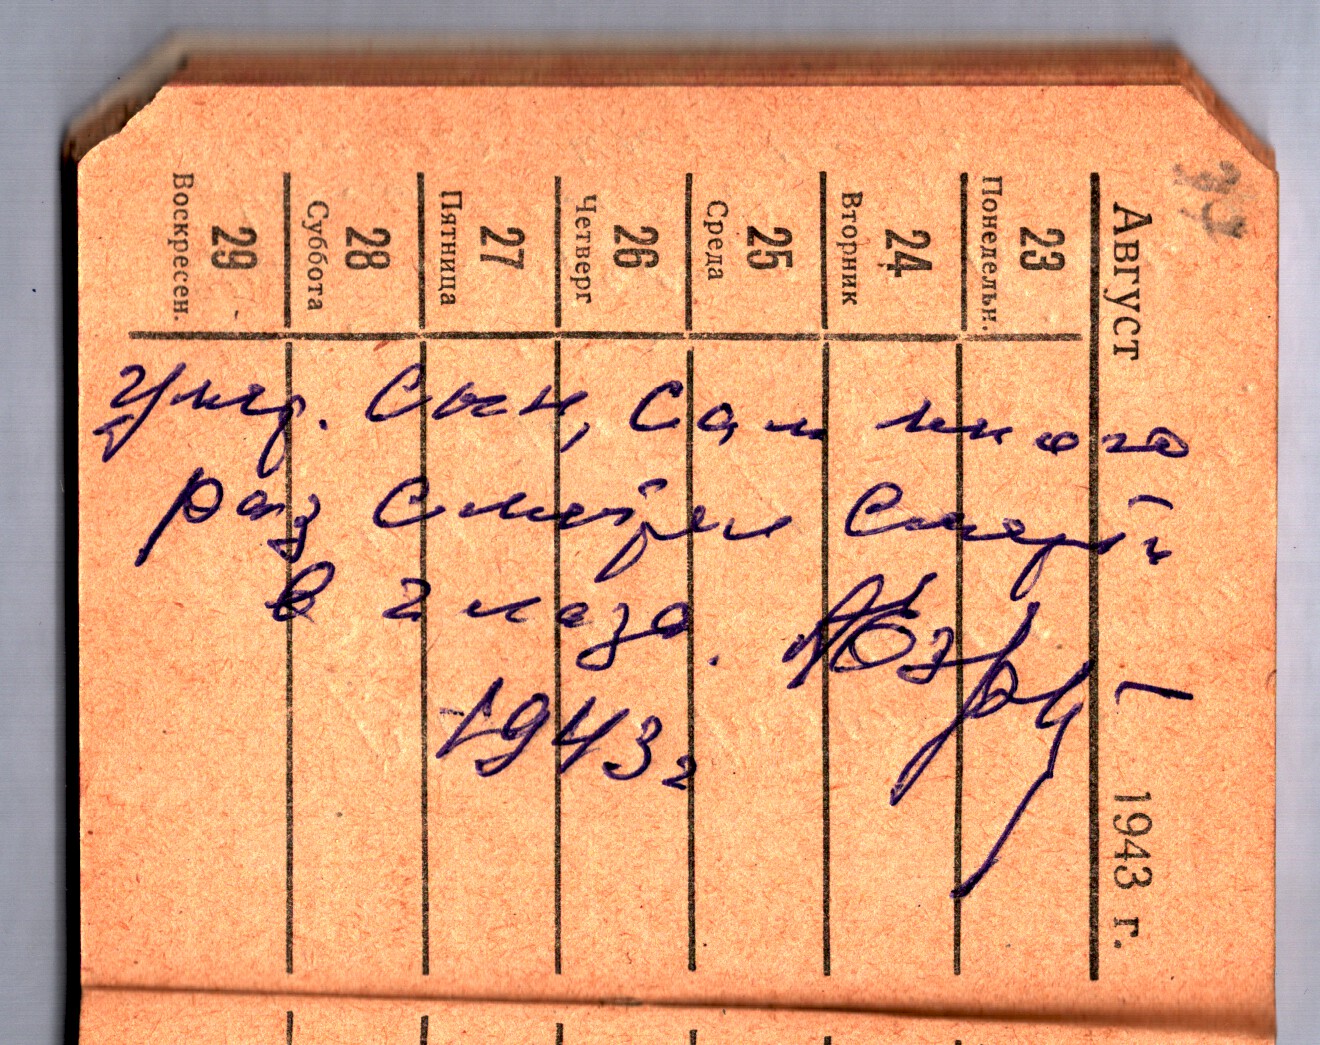 Август 1943 г.
23 Понедельн.
24 Вторник
25 Среда
26 Четверг
27 Пятница
28 Суббота
29 Воскресен.
умер. Сын, Сам много
раз смотрел смерти
в глаза.
1943 г